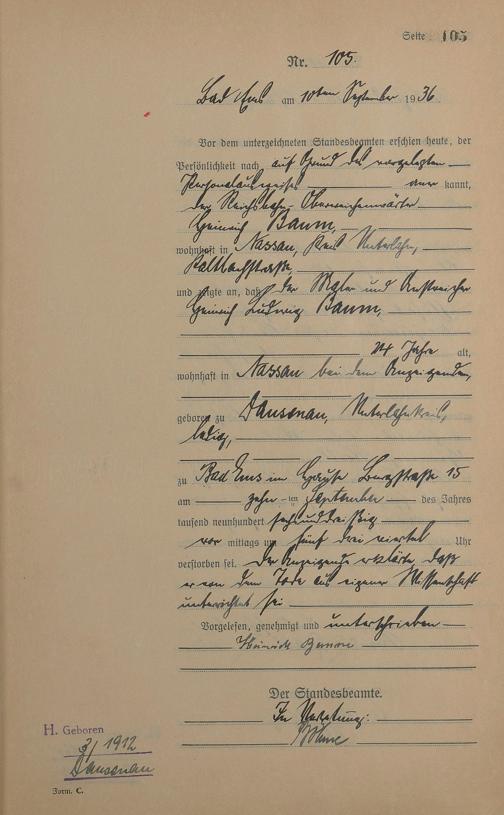 Seite 105
Nr. 105.
Bad Ems am 10ten September 1936.
Vor dem unterzeichneten Standesbeamten erschien heute, der
Persönlichkeit nach auf Grund des vorgelegten
Personalausweises anerkannt,
der Reichsbahn-Oberweichenwärter
Heinrich Baum,
wohnhaft in Nassau, Kreis Unterlahn,
Kaltbachstraße,
und zeigte an, daß der Maler und Anstreicher
Heinrich Ludwig Baum,
24 Jahre alt,
wohnhaft in Nassau bei dem Anzeigenden,
geboren zu Dausenau, Unterlahnkreis,
ledig,
zu Bad Ems im Hause Burgstraße 15
am zehn-ten September des Jahres
tausend neunhundert sechsunddreißig
vor mittags um fünf drei viertel Uhr
verstorben sei. Der Anzeigende erklärte, daß
er von dem Tode aus eigener Wissenschaft
unterrichtet sei
Vorgelesen, genehmigt und unterschrieben
Heinrich Baum
Der Standesbeamte.
In Vertretung:
H. Geboren
3/1912
Dausenau
Form. C.